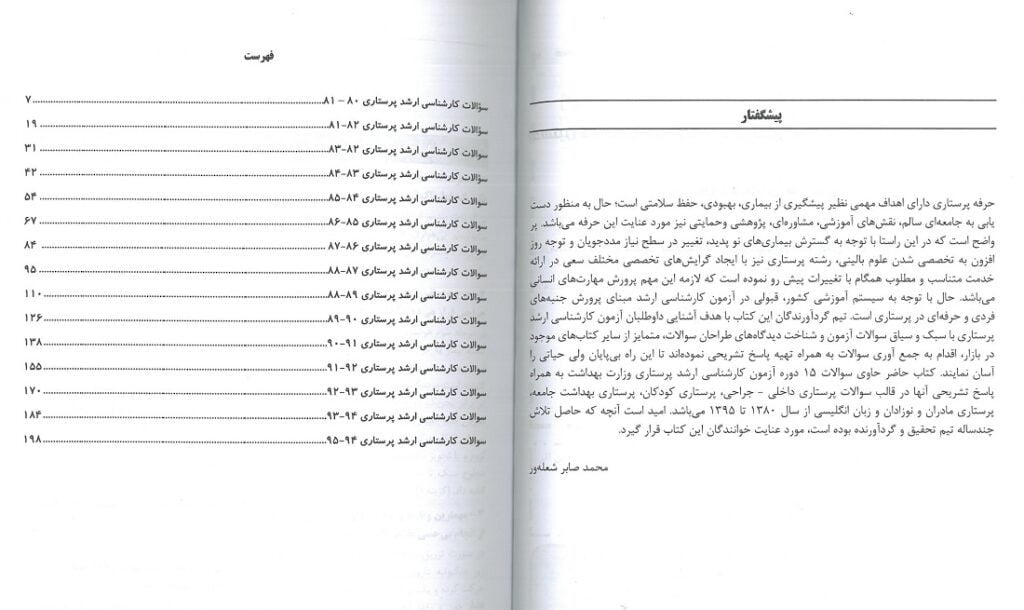 پیشگفتار
حرفه پرستاری دارای اهداف مهمی نظیر پیشگیری از بیماری، بهبودی، حفظ سلامتی است؛ حال به منظور دست
یابی به جامعه‌ای سالم، نقش‌های آموزشی، مشاوره‌ای، پژوهشی وحمایتی نیز مورد عنایت این حرفه می‌باشد. پر
واضح است که در این راستا با توجه به گسترش بیماری‌های نو پدید، تغییر در سطح نیاز مددجویان و توجه روز
افزون به تخصصی شدن علوم بالینی، رشته پرستاری نیز با ایجاد گرایش‌های تخصصی مختلف سعی در ارائه
خدمت متناسب و مطلوب همگام با تغییرات پیش رو نموده است که لازمه این مهم پرورش مهارت‌های انسانی
می‌باشد. حال با توجه به سیستم آموزشی کشور، قبولی در آزمون کارشناسی ارشد مبنای پرورش جنبه‌های
فردی و حرفه‌ای در پرستاری است. تیم گردآورندگان این کتاب با هدف آشنایی داوطلبان آزمون کارشناسی ارشد
پرستاری با سبک و سیاق سوالات آزمون و شناخت دیدگاه‌های طراحان سوالات، متمایز از سایر کتاب‌های موجود
در بازار، اقدام به جمع آوری سوالات به همراه تهیه پاسخ تشریحی نموده‌اند تا این راه بی‌پایان ولی حیاتی را
آسان نمایند. کتاب حاضر حاوی سوالات ۱۵ دوره آزمون کارشناسی ارشد پرستاری وزارت بهداشت به همراه
پاسخ تشریحی آنها در قالب سوالات پرستاری داخلی - جراحی، پرستاری کودکان، پرستاری بهداشت جامعه،
پرستاری مادران و نوزادان و زبان انگلیسی از سال ۱۳۸۰ تا ۱۳۹۵ می‌باشد. امید است آنچه که حاصل تلاش
چندساله تیم تحقیق و گردآورنده بوده است، مورد عنایت خوانندگان این کتاب قرار گیرد.
محمد صابر شعله‌ور
فهرست
سؤالات کارشناسی ارشد پرستاری ۸۰ - ۸۱...............۷
سوالات کارشناسی ارشد پرستاری ۸۲-۸۱...............۱۹
سوالات کارشناسی ارشد پرستاری ۸۲-۸۳...............۳۱
سوالات کارشناسی ارشد پرستاری ۸۳-۸۴...............۴۲
سوالات کارشناسی ارشد پرستاری ۸۴-۸۵...............۵۴
سوالات کارشناسی ارشد پرستاری ۸۵-۸۶...............۶۷
سوالات کارشناسی ارشد پرستاری ۸۶-۸۷...............۸۴
سوالات کارشناسی ارشد پرستاری ۸۷-۸۸...............۹۵
سوالات کارشناسی ارشد پرستاری ۸۹-۸۸...............۱۱۰
سوالات کارشناسی ارشد پرستاری ۹۰-۸۹...............۱۲۶
سوالات کارشناسی ارشد پرستاری ۹۱-۹۰...............۱۳۸
سوالات کارشناسی ارشد پرستاری ۹۲-۹۱...............۱۵۵
سوالات کارشناسی ارشد پرستاری ۹۲-۹۳...............۱۷۰
سوالات کارشناسی ارشد پرستاری ۹۴-۹۳...............۱۸۴
سوالات کارشناسی ارشد پرستاری ۹۴-۹۵...............۱۹۸